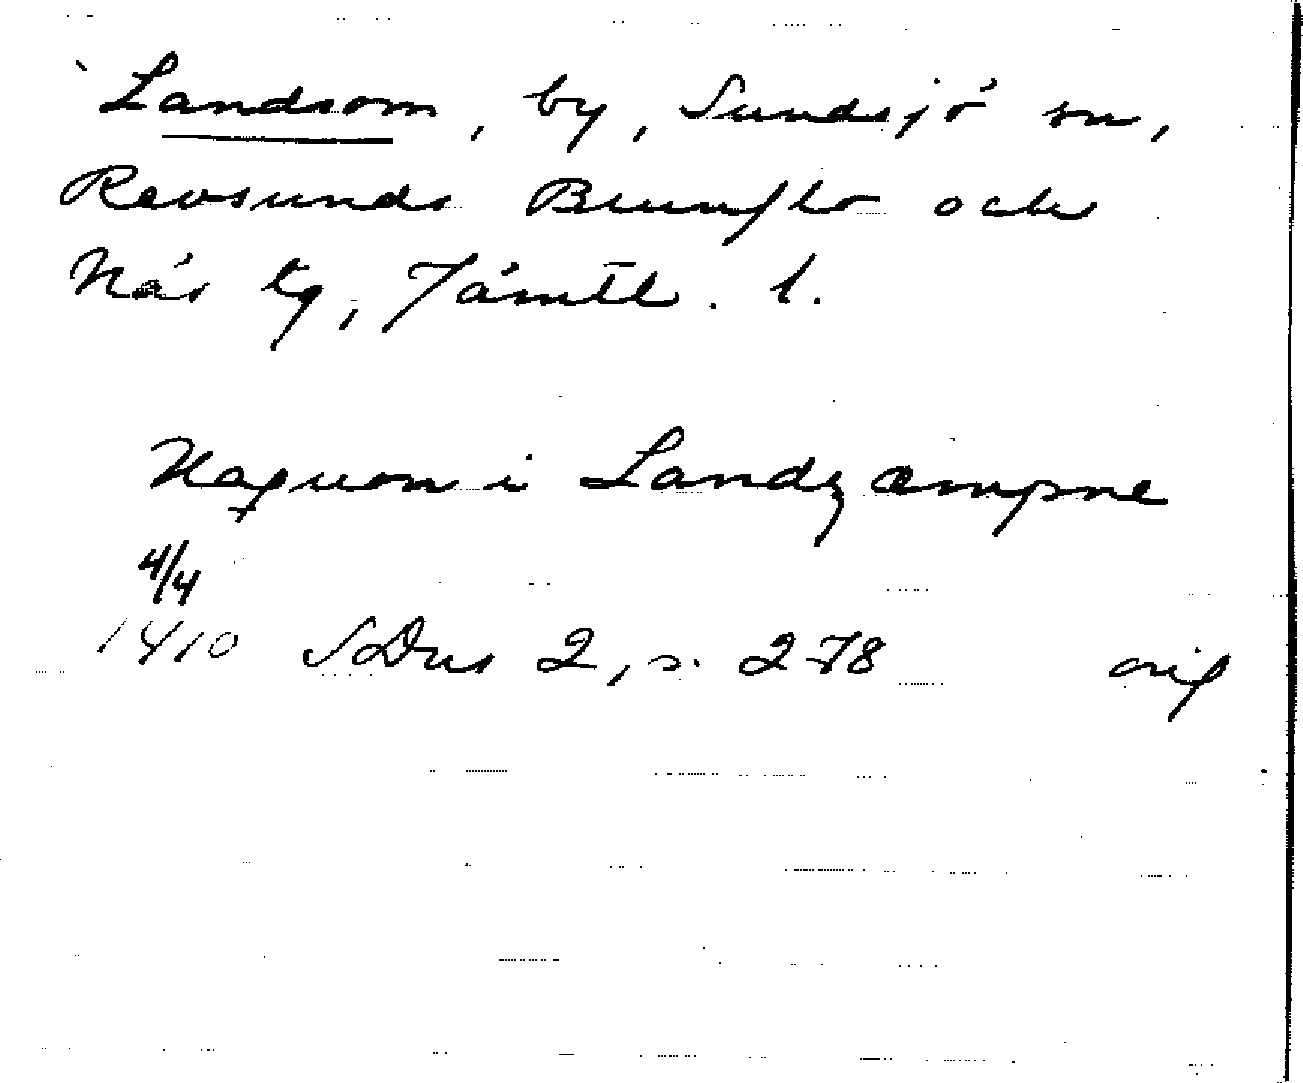 Landsom, by, Sundsjö sn,
Revsunds Brunflo och
Näs tg, Jämtl. l.
Haquon i Landzæmpne
4/4
1410 SDns 2, s. 278 orig